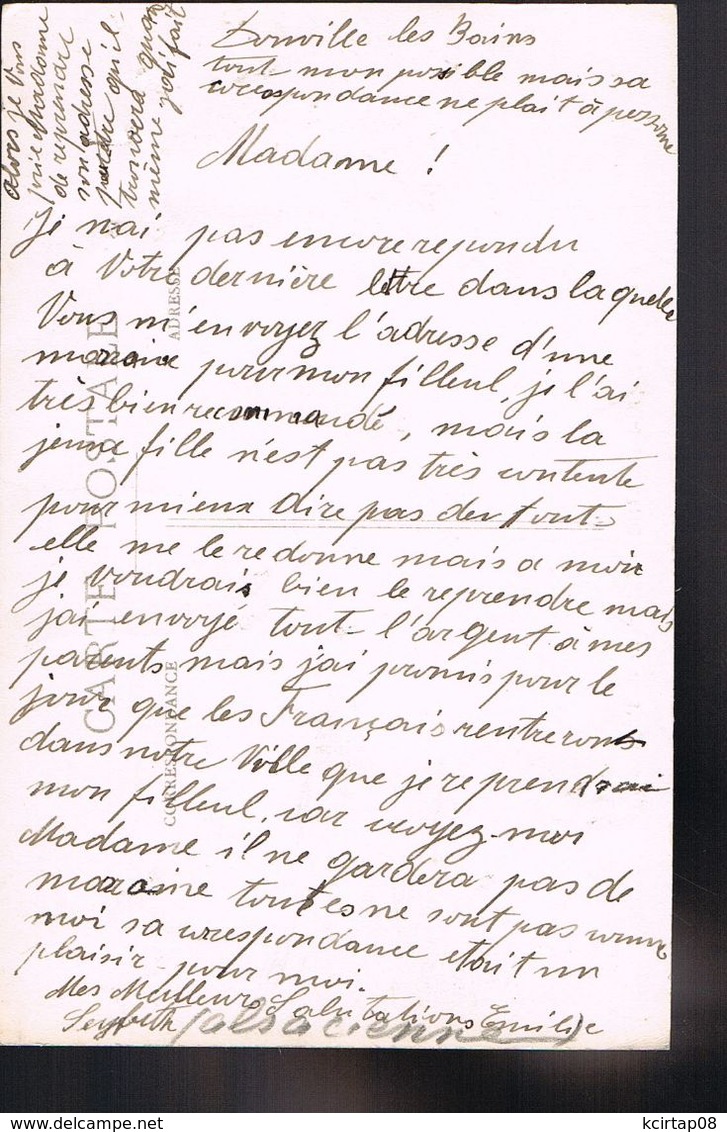 Donville les Bains
tout mon posible mais sa
corespondance ne plait à persone
Madame !
Je n'ai pas encore repondu
à Votre dernière lettre dans laquelle
Vous m'envoyez l'adresse d'une
maraine pour mon filleul, je l'ai
très bien recommandé, mais la
jeune fille n'est pas très contente
pour mieux dire pas du tout
elle me le redonne mais a moi
je voudrais bien le reprendre mais
jai envoyé tout l'argent à mes
parents mais jai promis pour le
jour que les Français rentrerons
dans notre Ville que je reprendrai
mon filleul, car croyez-moi
Madame il ne gardera pas de
maraine toutes ne sont pas comme
moi sa corespondance etait un
plaisir pour moi.
Mes Meilleurs Salutations Emilie
Seyboth
alsacienne
alors je Vous
prie Madame
de reprendre
son adresse
peutetre qu'il
trouvera quand
même
CARTE POSTALE
CORRESPONDANCE
ADRESSE
delcampe.net
kcirtap08